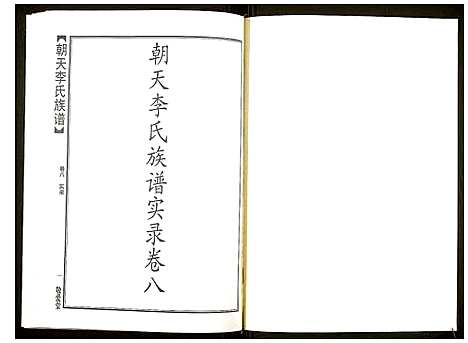 朝天李氏族谱实录卷八
【朝天李氏族谱】
卷八 实录
一